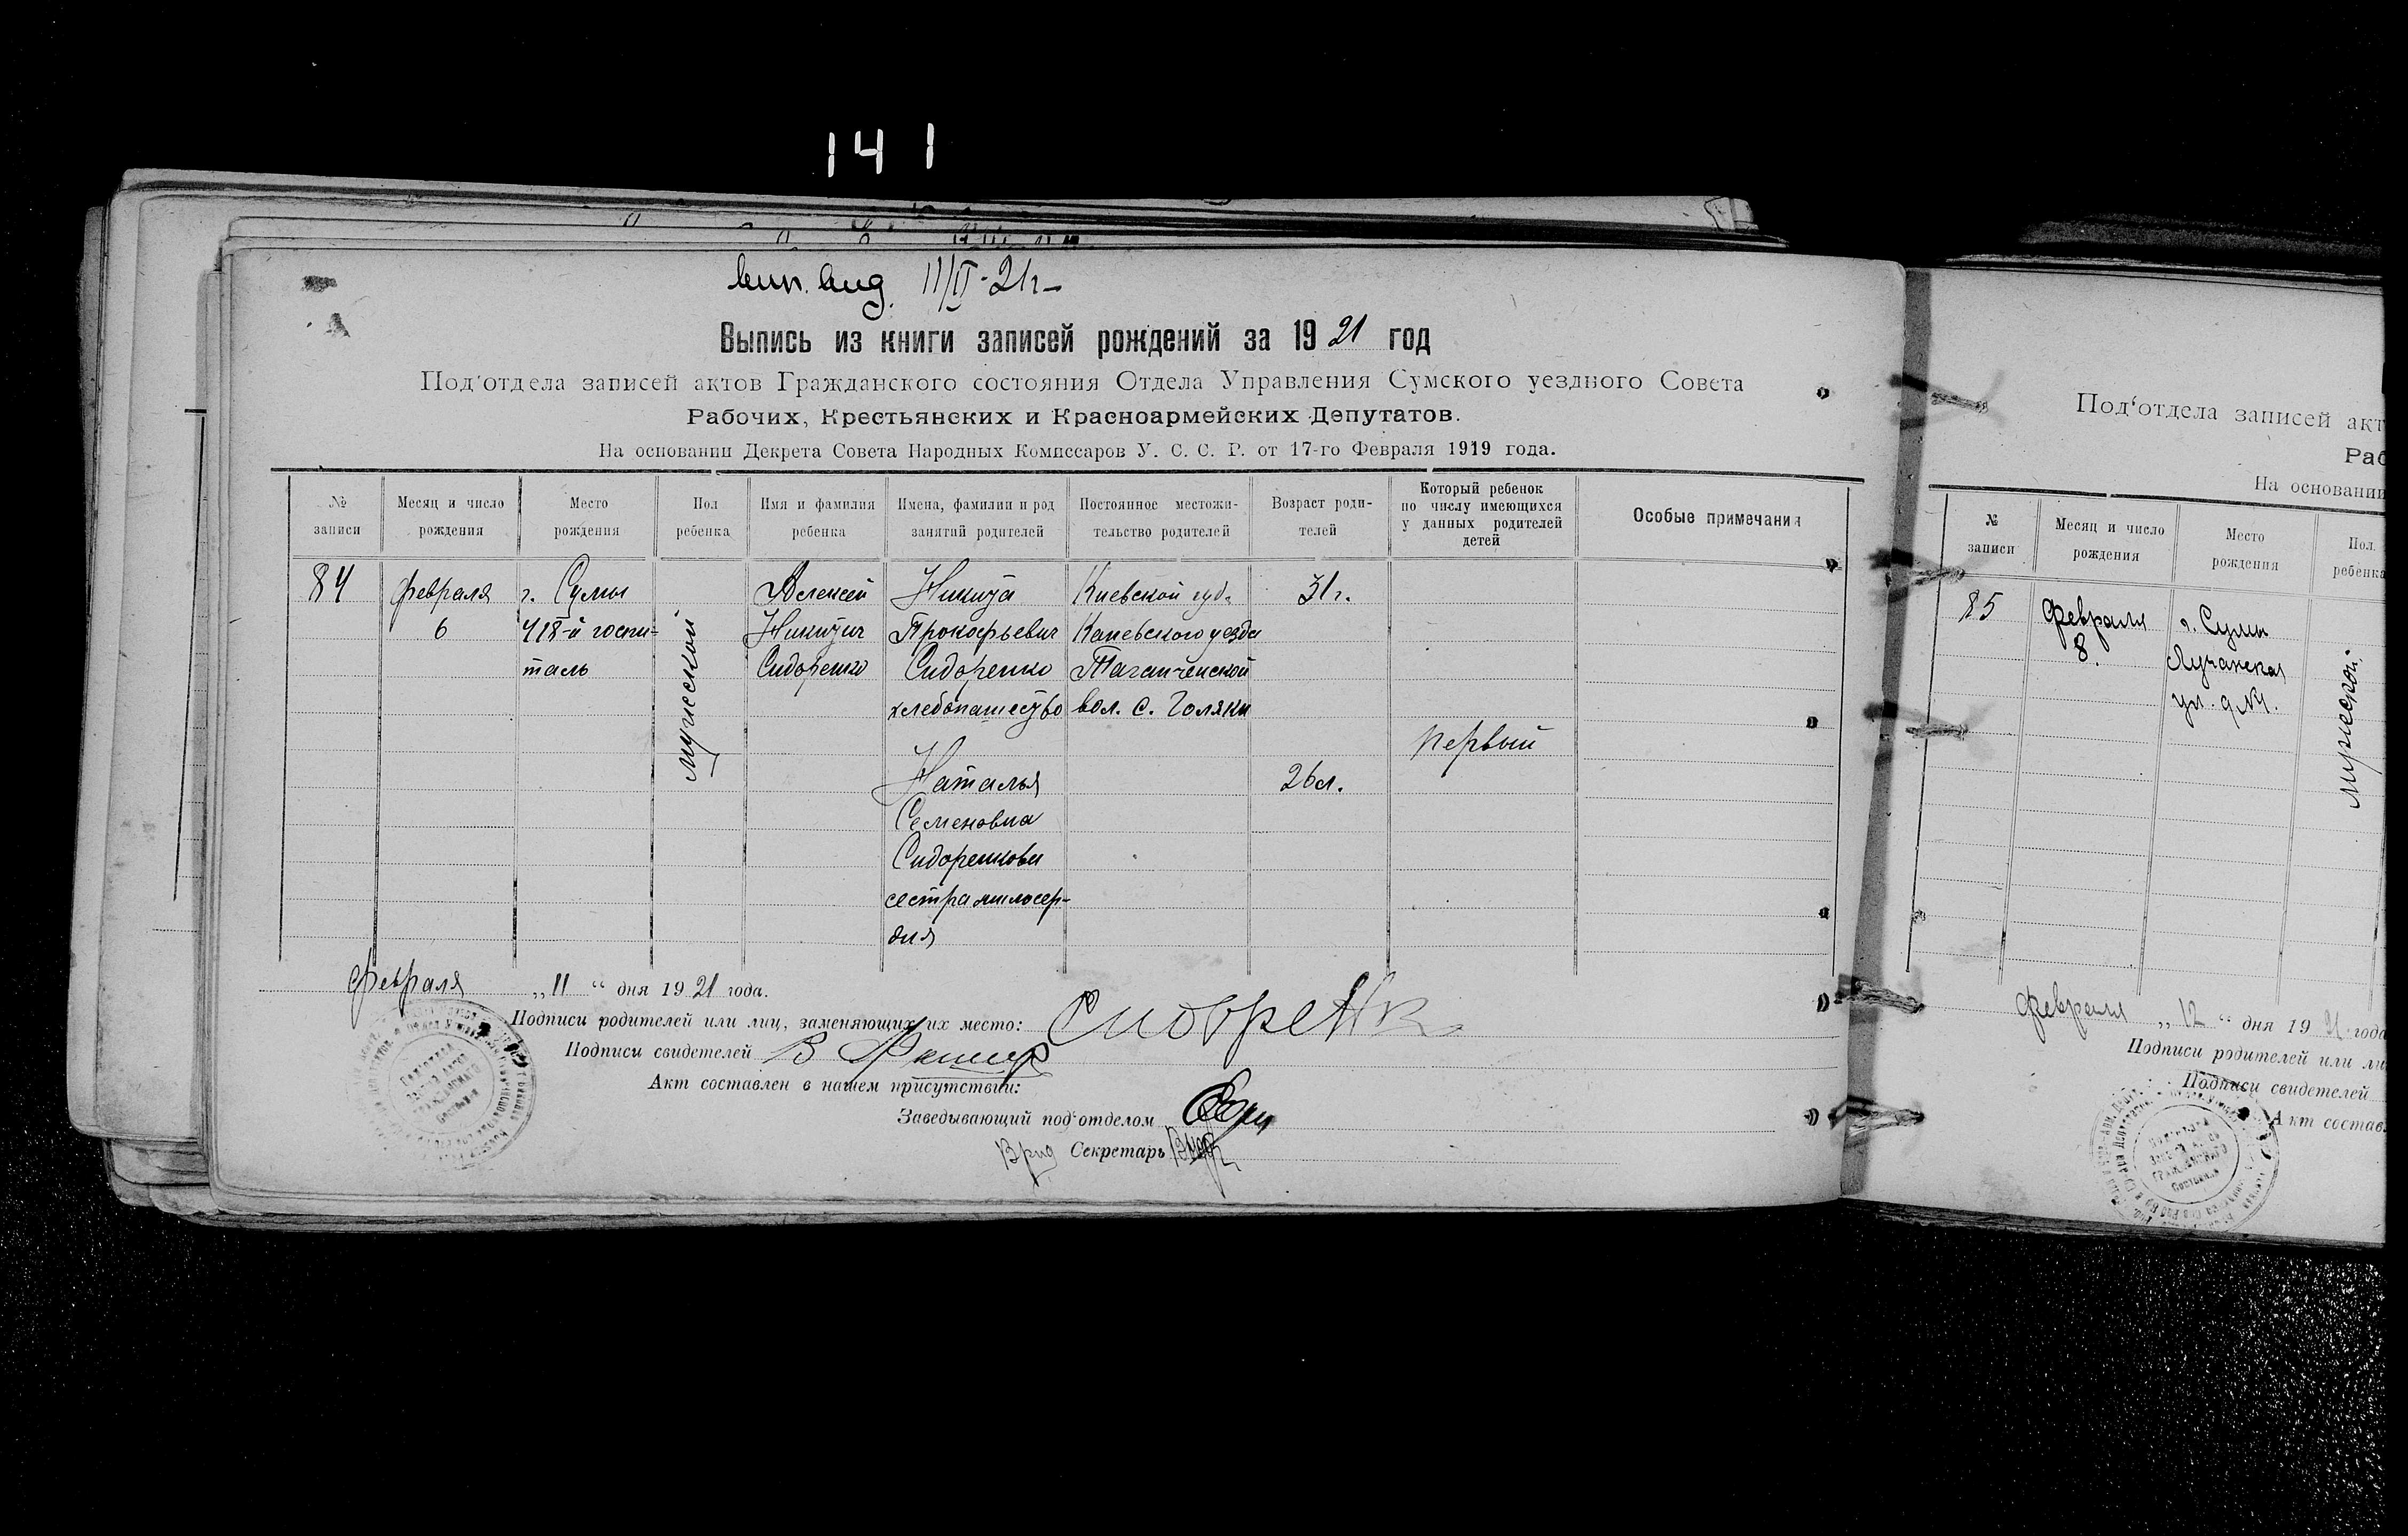 141
вып. выд. 11/II-21г
Выпись из книги записей рождений за 1921 год
Под'отдела записей актов Гражданского состояния Отдела Управления Сумского уездного Совета
Рабочих, Крестьянских и Красноармейских Депутатов.
На основании Декрета Совета Народных Комиссаров У. С. С. Р. от 17-го Февраля 1919 года.
№ записи
Месяц и число рождения
Место рождения
Пол ребенка
Имя и фамилия ребенка
Имена, фамилии и род занятий родителей
Постоянное местожи-тельство родителей
Возраст роди-телей
Который ребенок по числу имеющихся у данных родителей детей
Особые примечания
84
февраля
6
г. Сумы
418-й госпи-
таль
мужеской
Алексей
Никитич
Сидоренко
Никита
Прокофьевич
Сидоренко
хлебопашество
Киевской губ.
Каневского уезда
Таганченской
вол. с. Голяки
31 г.
первый
Наталья
Семеновна
Сидоренкови
сестра милосер-
дия
26 л.
февраля „11“ дня 1921 года.
Подписи родителей или лиц, заменяющих их место:
Подписи свидетелей В
Акт составлен в нашем присутствии:
Заведывающий под'отделом
Врид Секретарь
Под'отдела записей акт
Раб
На основании
№ записи
Месяц и число рождения
Место рождения
Пол ребенка
85
февраля
8.
г. Сумы
Лучанская
ул. д №1.
мужеской
февраля „12“ дня 1921 года
Подписи родителей или ли
Подписи свидетелей
Акт состав